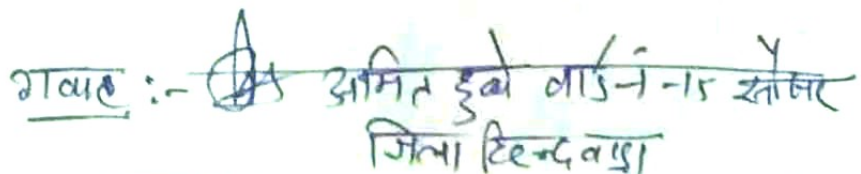 गवाह :- अमित दुबे वार्ड नं -15 सौसर
जिला छिन्दवाड़ा